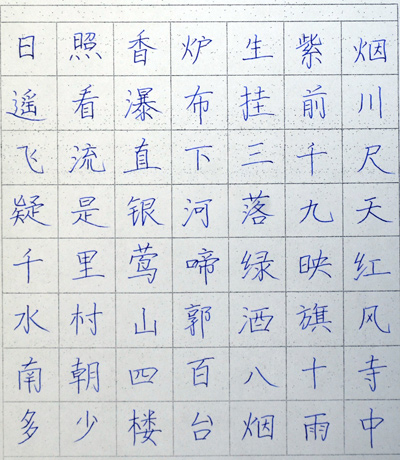 日照香炉生紫烟
遥看瀑布挂前川
飞流直下三千尺
疑是银河落九天
千里莺啼绿映红
水村山郭酒旗风
南朝四百八十寺
多少楼台烟雨中